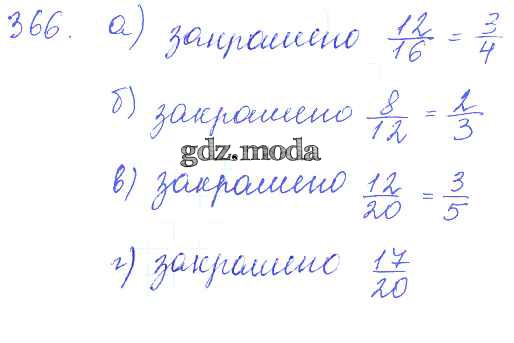 366. а) закрашено 12/16 = 3/4
б) закрашено 8/12 = 2/3
gdz.moda
в) закрашено 12/20 = 3/5
г) закрашено 17/20